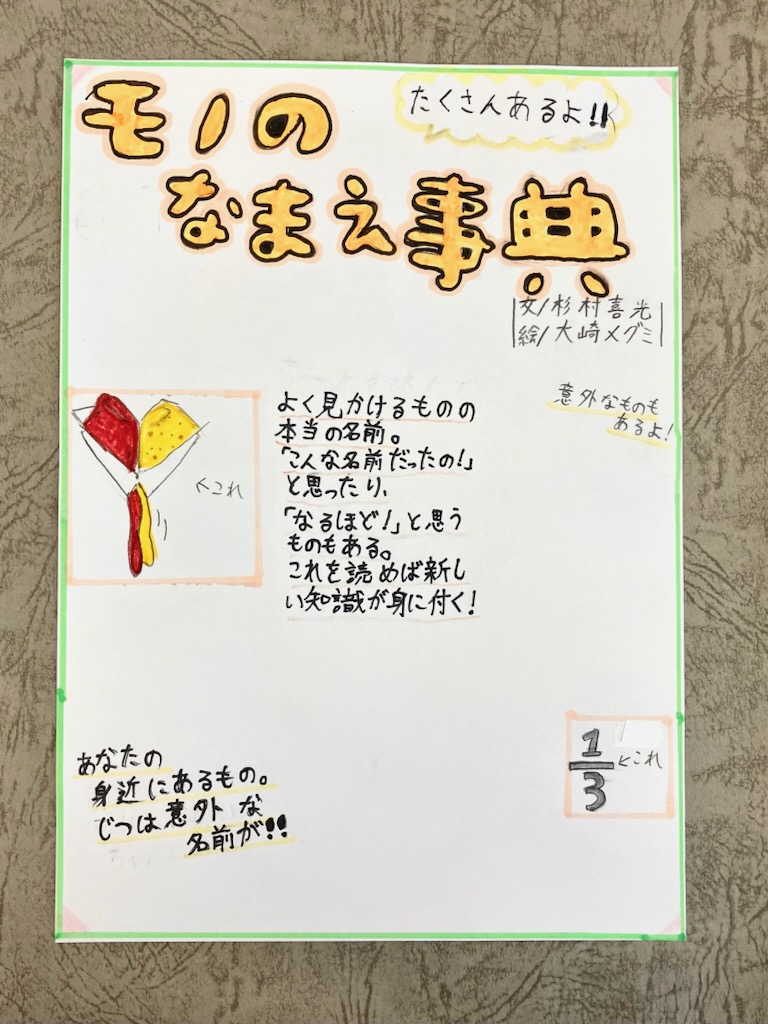 モノの
たくさんあるよ!!
なまえ事典
文/杉村喜光
絵/大崎メグミ
意外なものも
あるよ!
よく見かけるものの
本当の名前。
「こんな名前だったの!」
と思ったり、
「なるほど!」と思う
ものもある。
これを読めば新し
い知識が身に付く!
←これ
1
3
←これ
あなたの
身近にあるもの。
じつは意外な
名前が!!